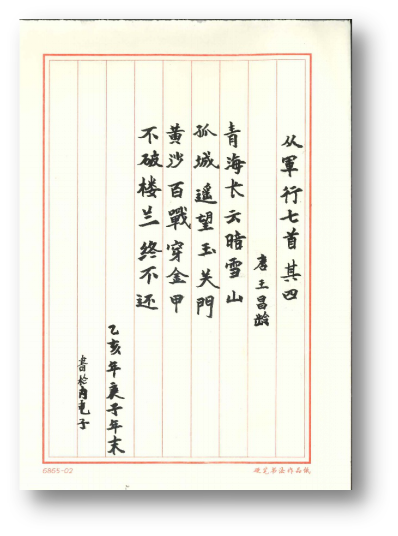 从軍行七首 其四
唐 王昌龄
青海长云暗雪山
孤城遥望玉关門
黄沙百戰穿金甲
不破楼兰终不还
乙亥年庚子年末
6865-02
硬笔书法作品纸